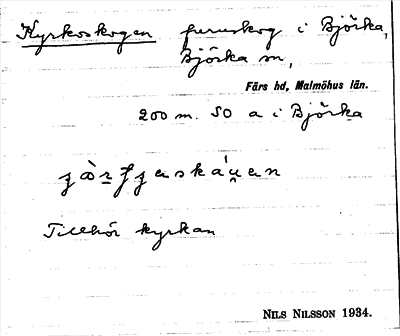 Kyrkoskogen furuskog i Björka,
Björka sn,
Färs hd, Malmöhus län.
200 m. SO a i Björka
Tillhör kyrkan
NILS NILSSON 1934.